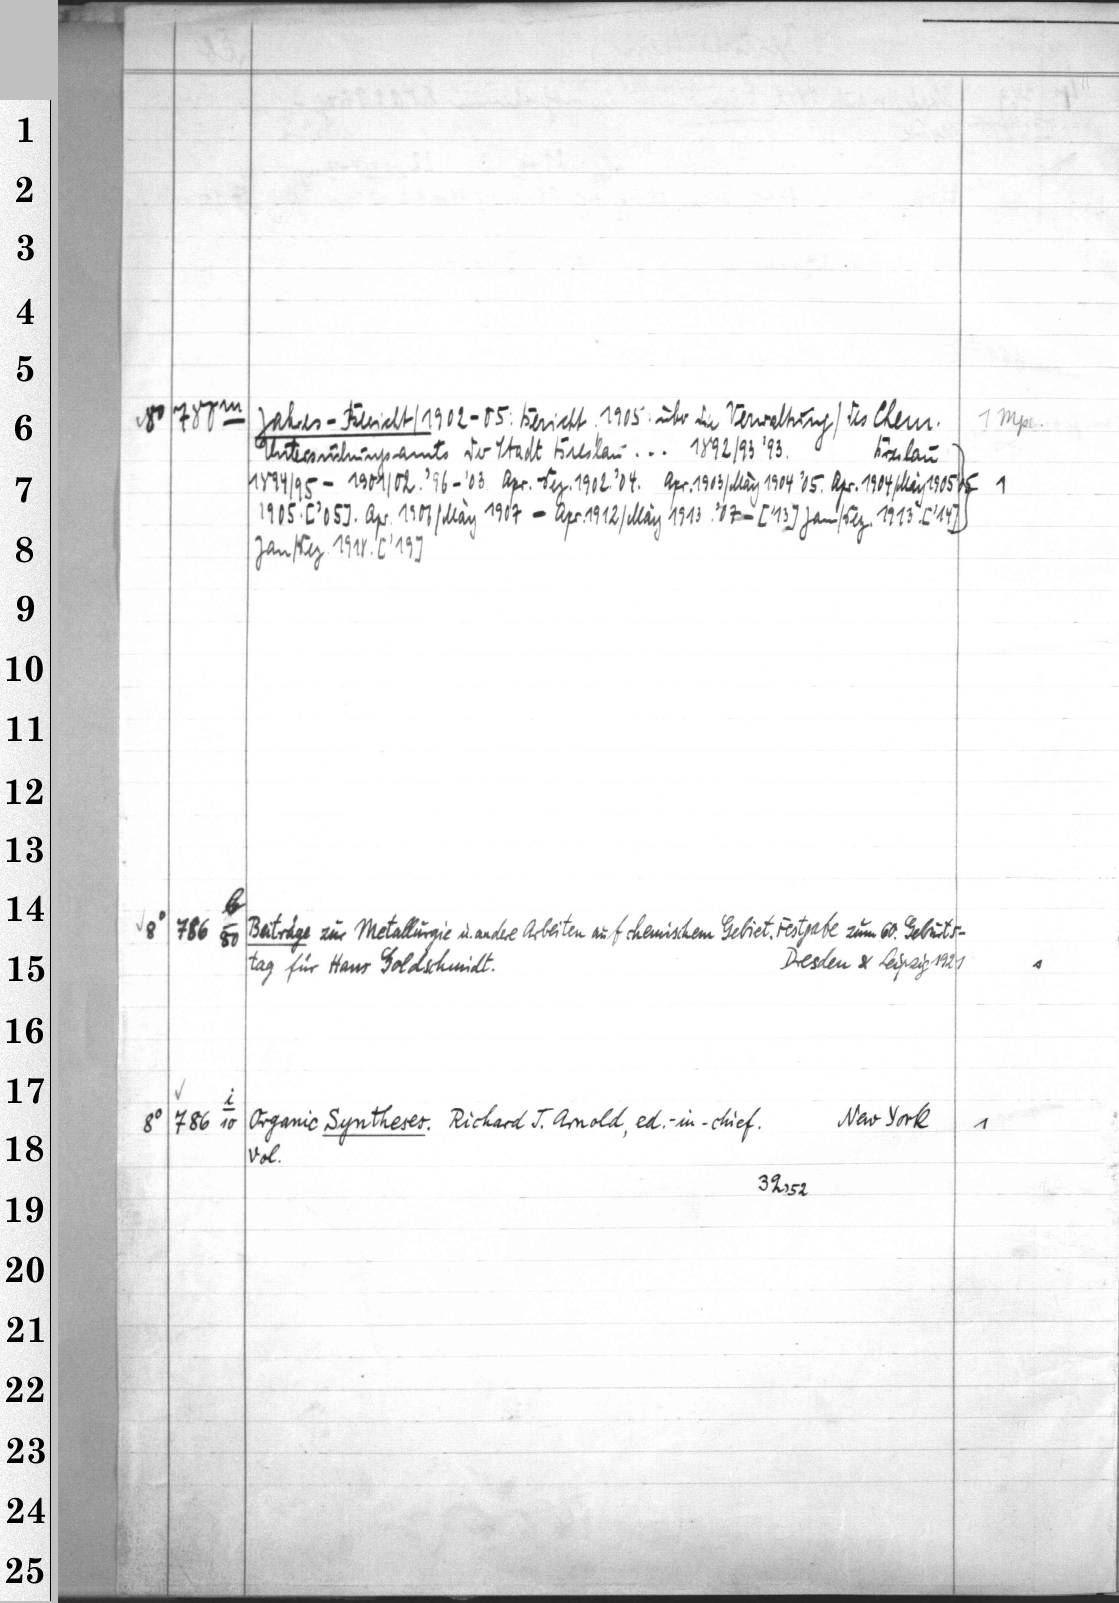 1
2
3
4
5
6
7
8
9
10
11
12
13
14
15
16
17
18
19
20
21
22
23
24
25
8° 787 m Jahres-Bericht/1902-05: Bericht. 1905: über die Verwaltung/ des Chem. 1 Mpr.
Untersuchungsamts der Stadt Breslau ... 1892/93 '93. Breslau
1894/95 - 1901/02. '96-'03. Apr.-Dez. 1902 '04. Apr. 1903/März 1904 '05. Apr. 1904/März 1905 05 1
1905. ['05]. Apr. 1906/März 1907 - Apr. 1912/März 1913. '07-['13] Jan/Dez. 1913. ['14]
Jan/Dez. 1918. ['19]
8° 786 b/80 Beiträge zur Metallurgie u. andere Arbeiten auf chemischem Gebiet. Festgabe zum 60. Geburts-
tag für Hans Goldschmidt. Dresden & Leipzig 1921 1
8° 786 i/10 Organic Syntheses. Richard T. Arnold, ed.-in-chief. New York 1
Vol.
32,52